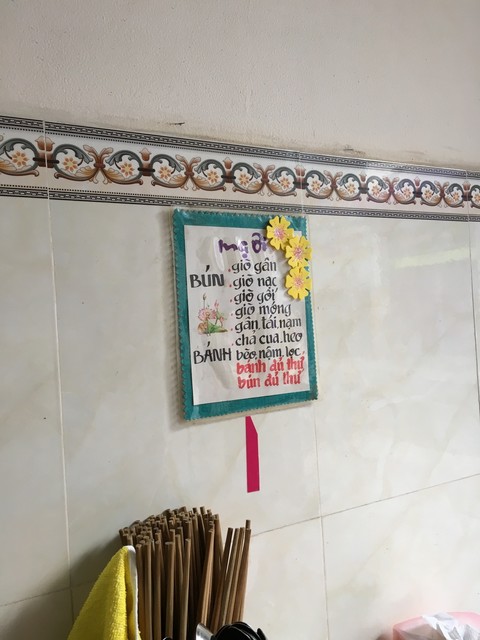 BÚN
. giò gân
. giò nạc
. giò gối
. giò móng
. gân, tái, nạm
. chả cua, heo
BÁNH
. bèo, nậm, lọc
bánh đủ thứ
bún đủ thứ